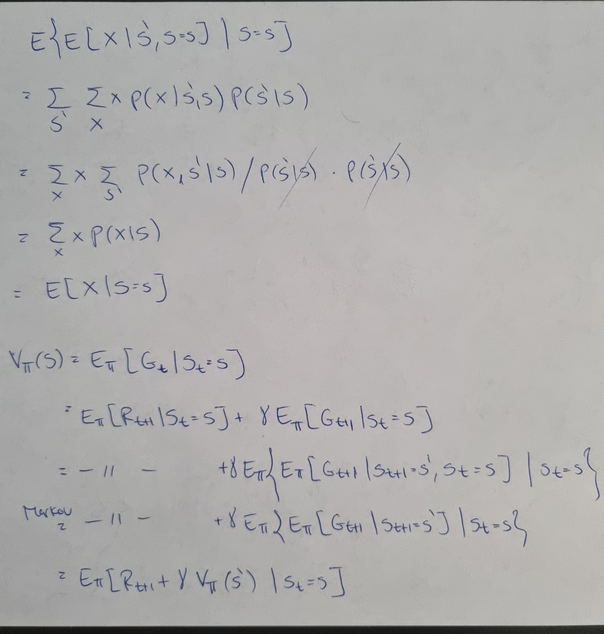 E{E[X|s',S=s] | S=s]
= Σ_s' Σ_x x p(x|s',s) p(s'|s)
= Σ_x x Σ_s' p(x,s'|s) / p(s'|s) · p(s'|s)
= Σ_x x p(x|s)
= E[X|S=s]
V_π(s) = E_π[G_t|S_t=s]
= E_π[R_t+1|S_t=s] + γ E_π[G_t+1|S_t=s]
= - 11 - + γ E_π{E_π[G_t+1|S_t+1=s', S_t=s] | S_t=s}
Markov = - 11 - + γ E_π{E_π[G_t+1|S_t+1=s'] | S_t=s}
= E_π[R_t+1 + γ V_π(s') | S_t=s]